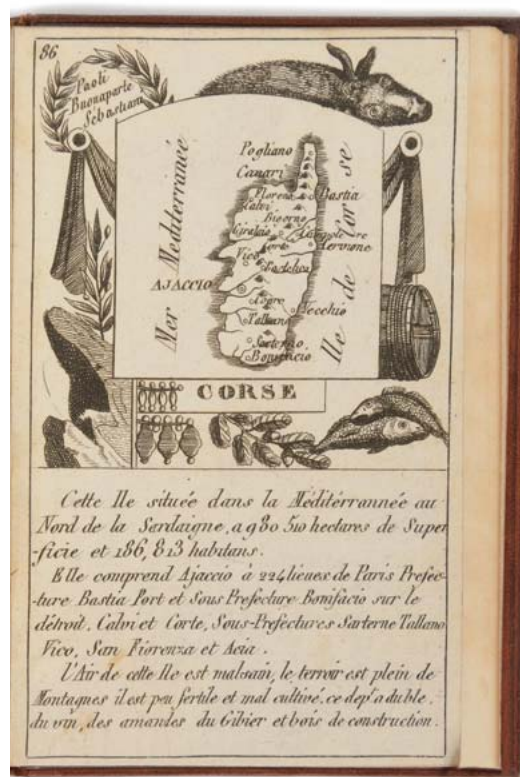 86
Paoli
Buonaparte
Sébastiani
Mer Mediterranée
Ile de Corse
Pogliano
Canari
Bastia
Calvi
Vico
AJACCIO
Vecchio
Tallano
Bonifacio
CORSE
Cette Ile située dans la Méditérrannée au
Nord de la Sardaigne, a 980 510 hectares de Super
-ficie et 186,813 habitans.
Elle comprend Ajaccio à 224 lieues de Paris Prefec-
-ture Bastia Port et Sous Prefecture Bonifacio sur le
détroit, Calvi et Corte, Sous-Prefectures Sarterne Tallano
Vico, San Fiorenza et Acia.
L'Air de cette Ile est malsain, le terroir est plein de
Montagnes il est peu fertile et mal cultivé. ce dept. a du ble.
du vin, des amandes du Gibier et bois de construction.